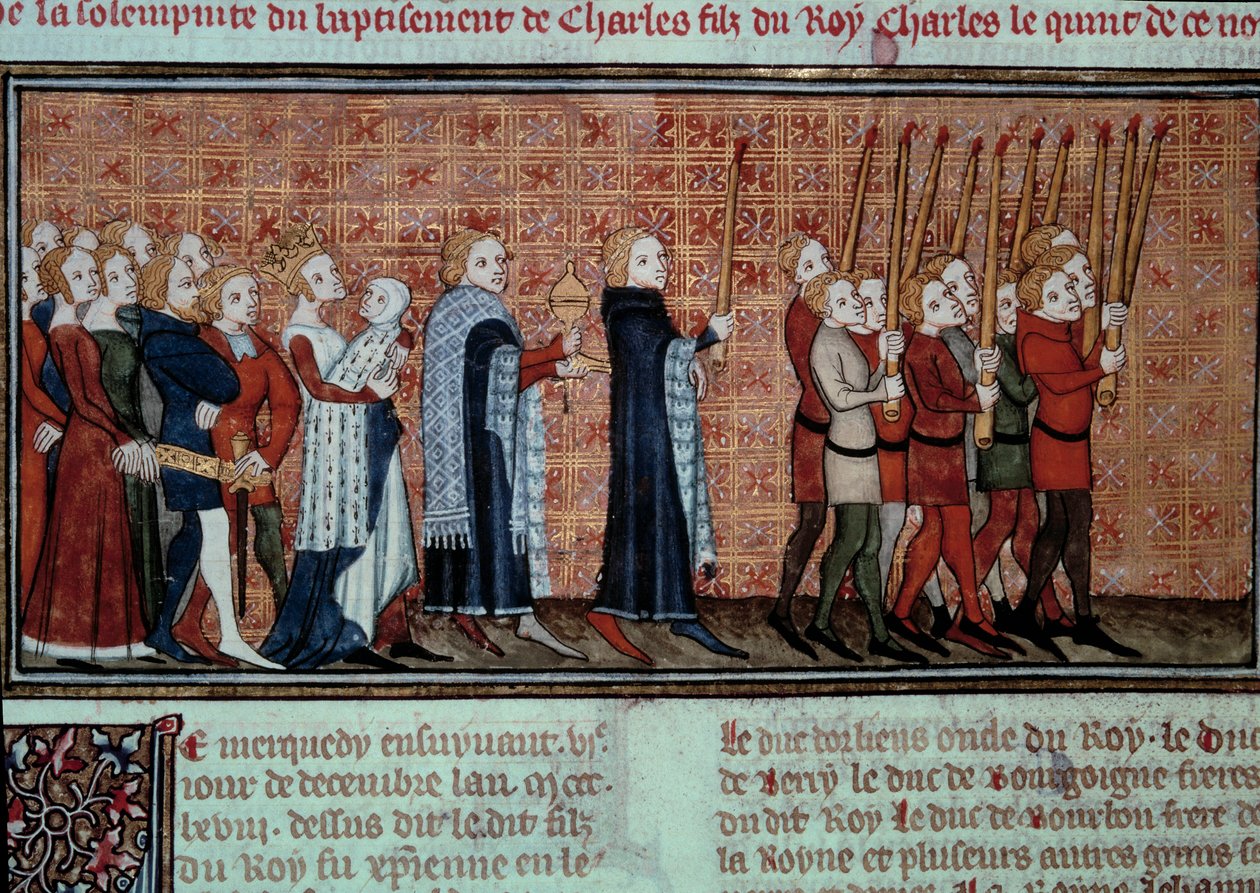 De la solempnite du baptisement de Charles filz du Roy Charles le quint de ce no
Le merquedy ensuyuant. vi.e
iour de decembre lan. m ccc.
lxviii. dessus dit le dit filz
du Roy fu xpienne en le
Le duc dorliens oncle du Roy. le duc
de Berry le duc de Bourgoigne freres
du dit Roy Le duc de Bourbon frere de
la Royne et pluseurs autres grans s